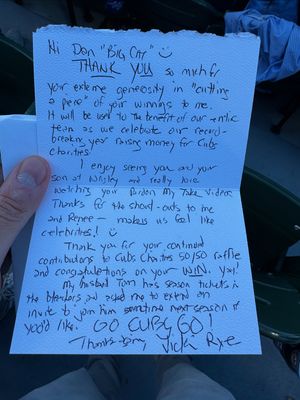 Hi Dan "BIG CAT" ☺
THANK YOU so much for
your extreme generosity in "cutting
a piece" of your winnings to me.
It will be used to the benefit of our entire
team as we celebrate our record-
breaking year raising money for Cubs
Charities!
I enjoy seeing you and your
son at Wrigley and really love
watching your Pardon My Take videos.
Thanks for the shout-outs to me
and Renee – makes us feel like
celebrities! ☺
Thank you for your continued
contributions to Cubs Charities 50/50 raffle
and congratulations on your WIN. Yay!
My husband Tom has season tickets in
the bleachers and asked me to extend an
invite to join him sometime next season if
you'd like. GO CUBS GO!
Thanks again,
Vicki Rye